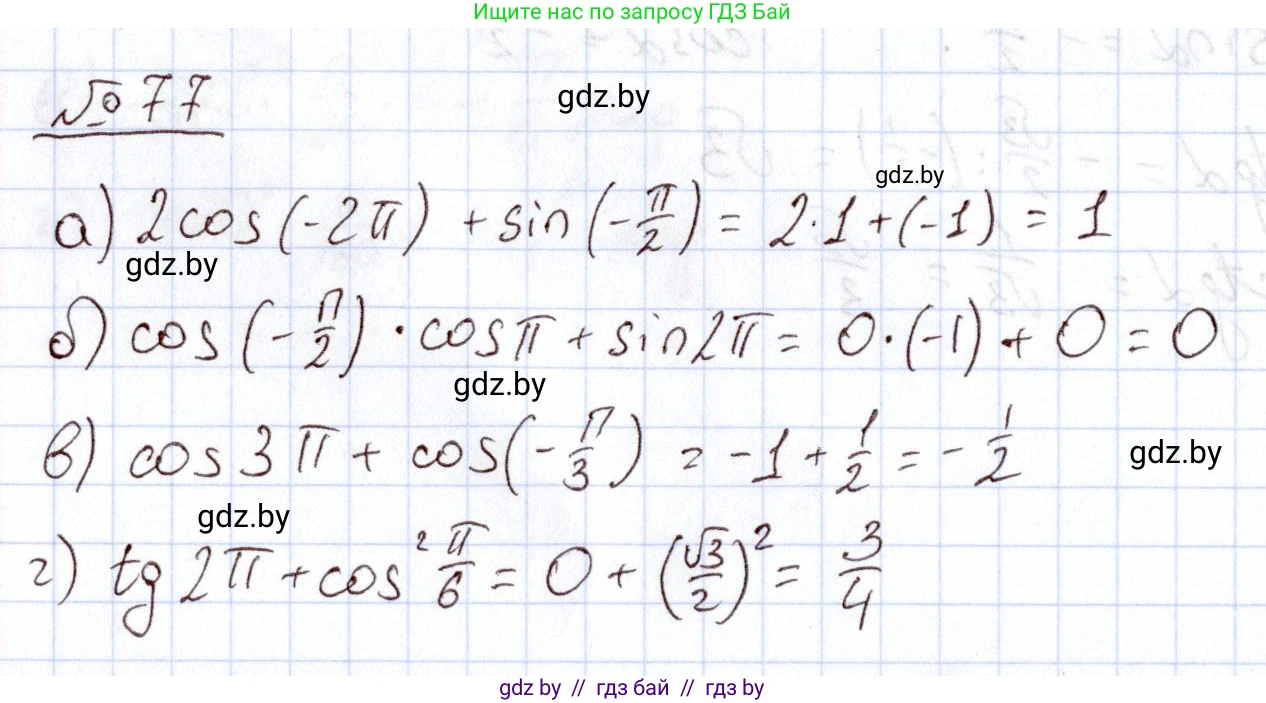 Ищите нас по запросу ГДЗ Бай
№ 77
gdz.by
gdz.by
а) 2cos(-2π) + sin(-π/2) = 2·1 + (-1) = 1
gdz.by
б) cos(-π/2) · cosπ + sin2π = 0·(-1) + 0 = 0
gdz.by
в) cos3π + cos(-π/3) = -1 + 1/2 = -1/2
gdz.by
gdz.by
г) tg2π + cos²π/6 = 0 + (√3/2)² = 3/4
gdz by // гдз бай // гдз by